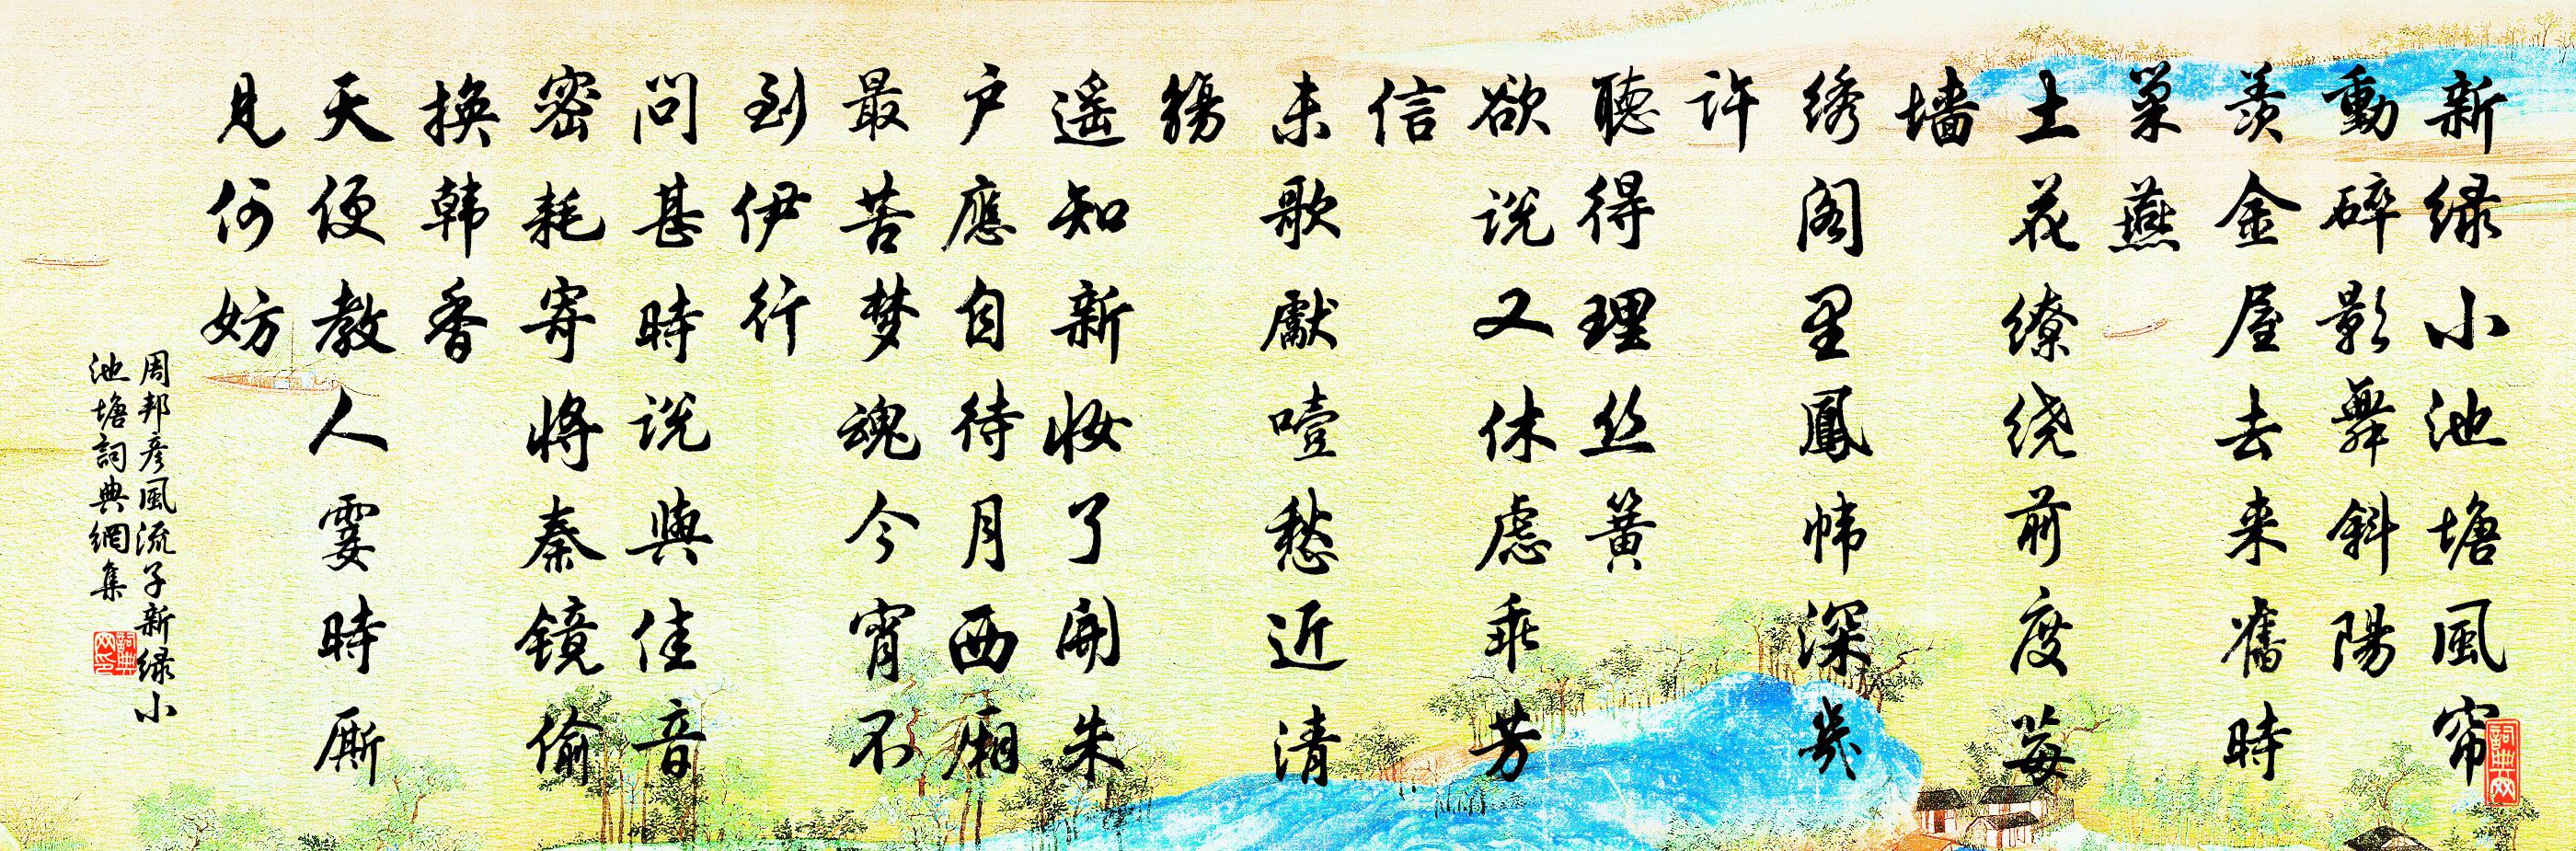 新绿小池塘風帘
動碎影舞斜陽
羡金屋去来舊時
巢燕
土花缭绕前度莓
墙
绣阁里鳳帏深幾
许
聽得理丝簧
欲说又休慮乖芳
信
未歌先噎愁近清
觴
遥知新妆了開朱
户應自待月西廂
最苦梦魂今宵不
到伊行
問甚時说與佳音
密耗寄将秦镜偷
换韩香
天便教人霎時厮
見何妨
周邦彦風流子新绿小
池塘詞典網集
詞典网印
詞典网